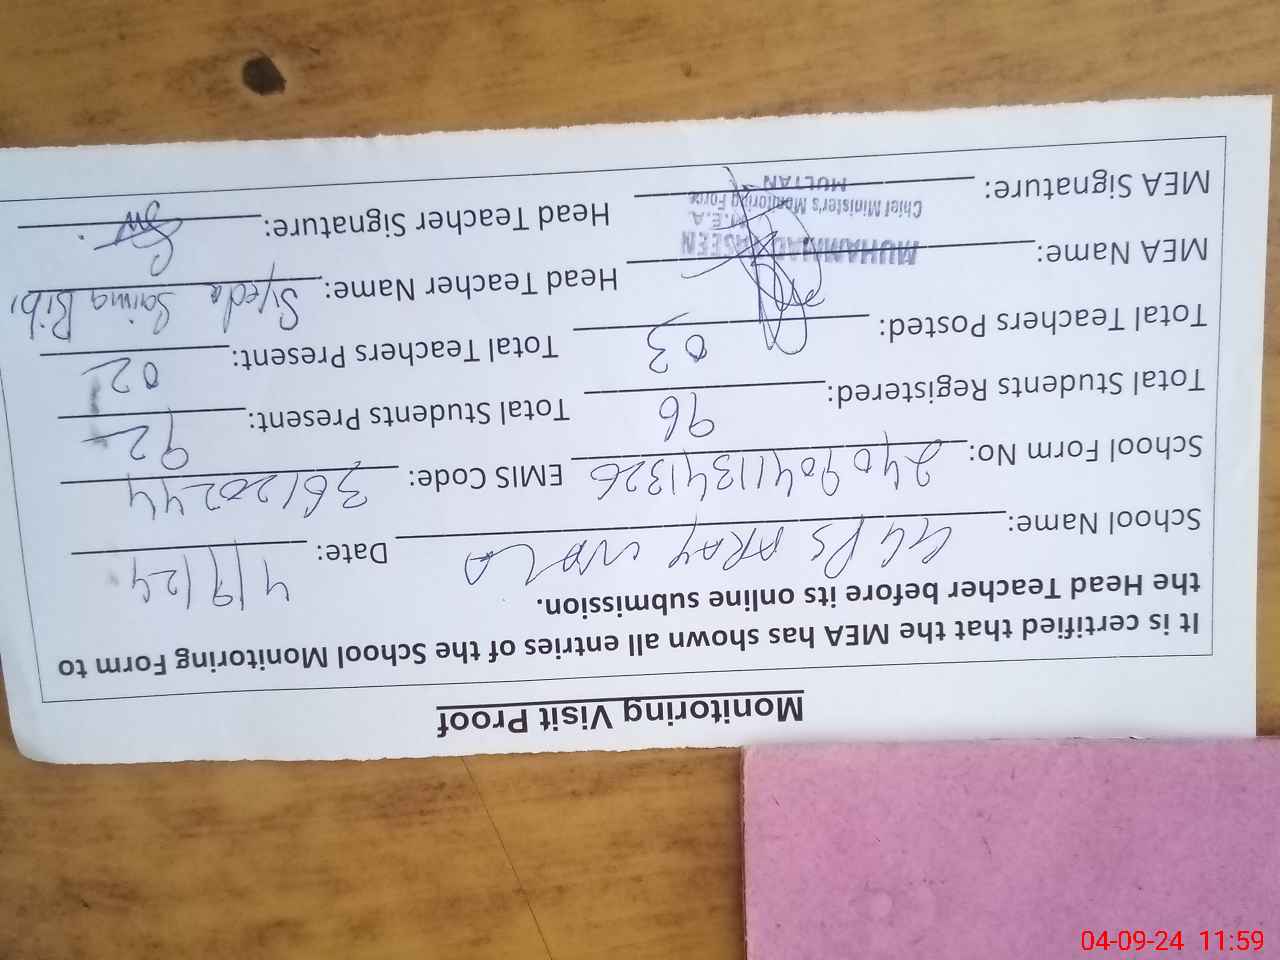 Monitoring Visit Proof
It is certified that the MEA has shown all entries of the School Monitoring Form to
the Head Teacher before its online submission.
School Name: GGPS ARAY WALA Date: 4/9/24
School Form No: 24090411341326 EMIS Code: 36120244
Total Students Registered: 96 Total Students Present: 92
Total Teachers Posted: 03 Total Teachers Present: 02
MEA Name: MUHAMMAD YASEEN Head Teacher Name: Syeda Saima Bibi
M.E.A.
Chief Minister's Monitoring Force
MEA Signature: MULTAN Head Teacher Signature:
04-09-24 11:59